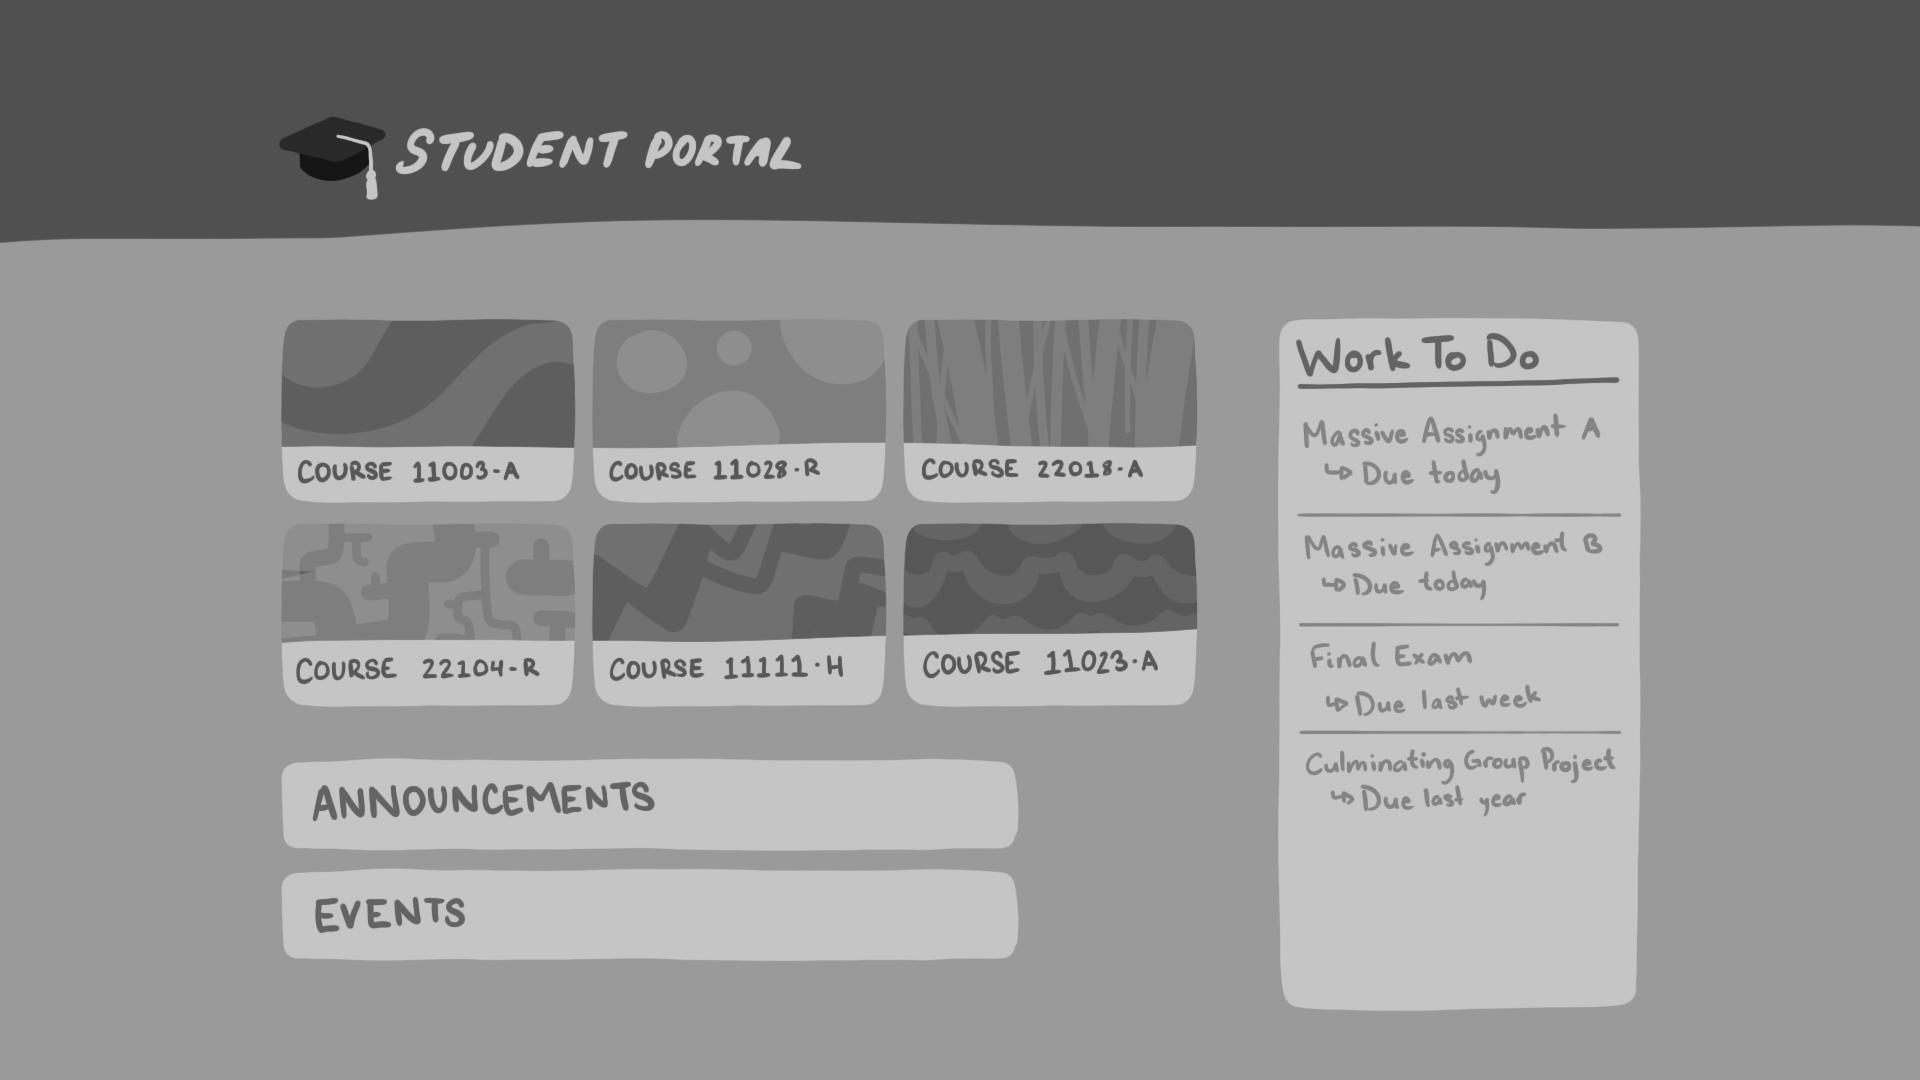 STUDENT PORTAL
COURSE 11003-A
COURSE 11028-R
COURSE 22018-A
COURSE 22104-R
COURSE 11111-H
COURSE 11023-A
ANNOUNCEMENTS
EVENTS
Work To Do
Massive Assignment A
↳ Due today
Massive Assignment B
↳ Due today
Final Exam
↳ Due last week
Culminating Group Project
↳ Due last year